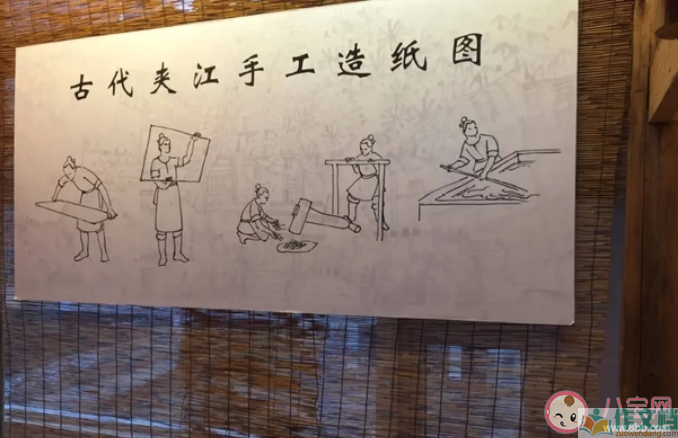 古代夹江手工造纸图
八宝网
zuowendang.com